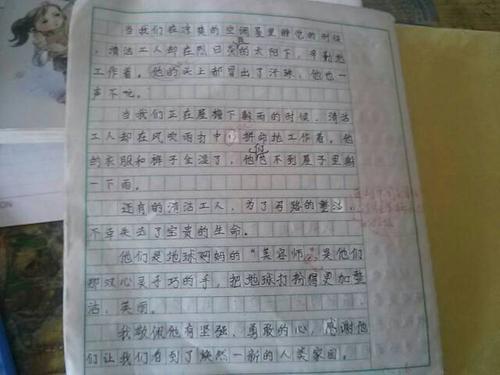 当我们在凉爽的空调屋里睡觉的时候
，清洁工人却在烈日炎的太阳下，辛勤地
工作着。他的头上都冒出了汗珠，他也一
声不吭。
当我们正在屋檐下躲雨的时候，清洁
工人却在风吹雨打中拼命地工作着。他
的衣服和裤子全湿了，他也不到屋子里躲
一下雨。
还有的清洁工人，为了马路的整洁，
不幸失去了宝贵的生命。
他们是地球妈妈的“美容师”，是他们
那双心灵手巧的手，把地球打扮得更加整
洁，美丽。
我敬佩他有坚强、勇敢的心，感谢他
们让我们看到了焕然一新的人类家园。